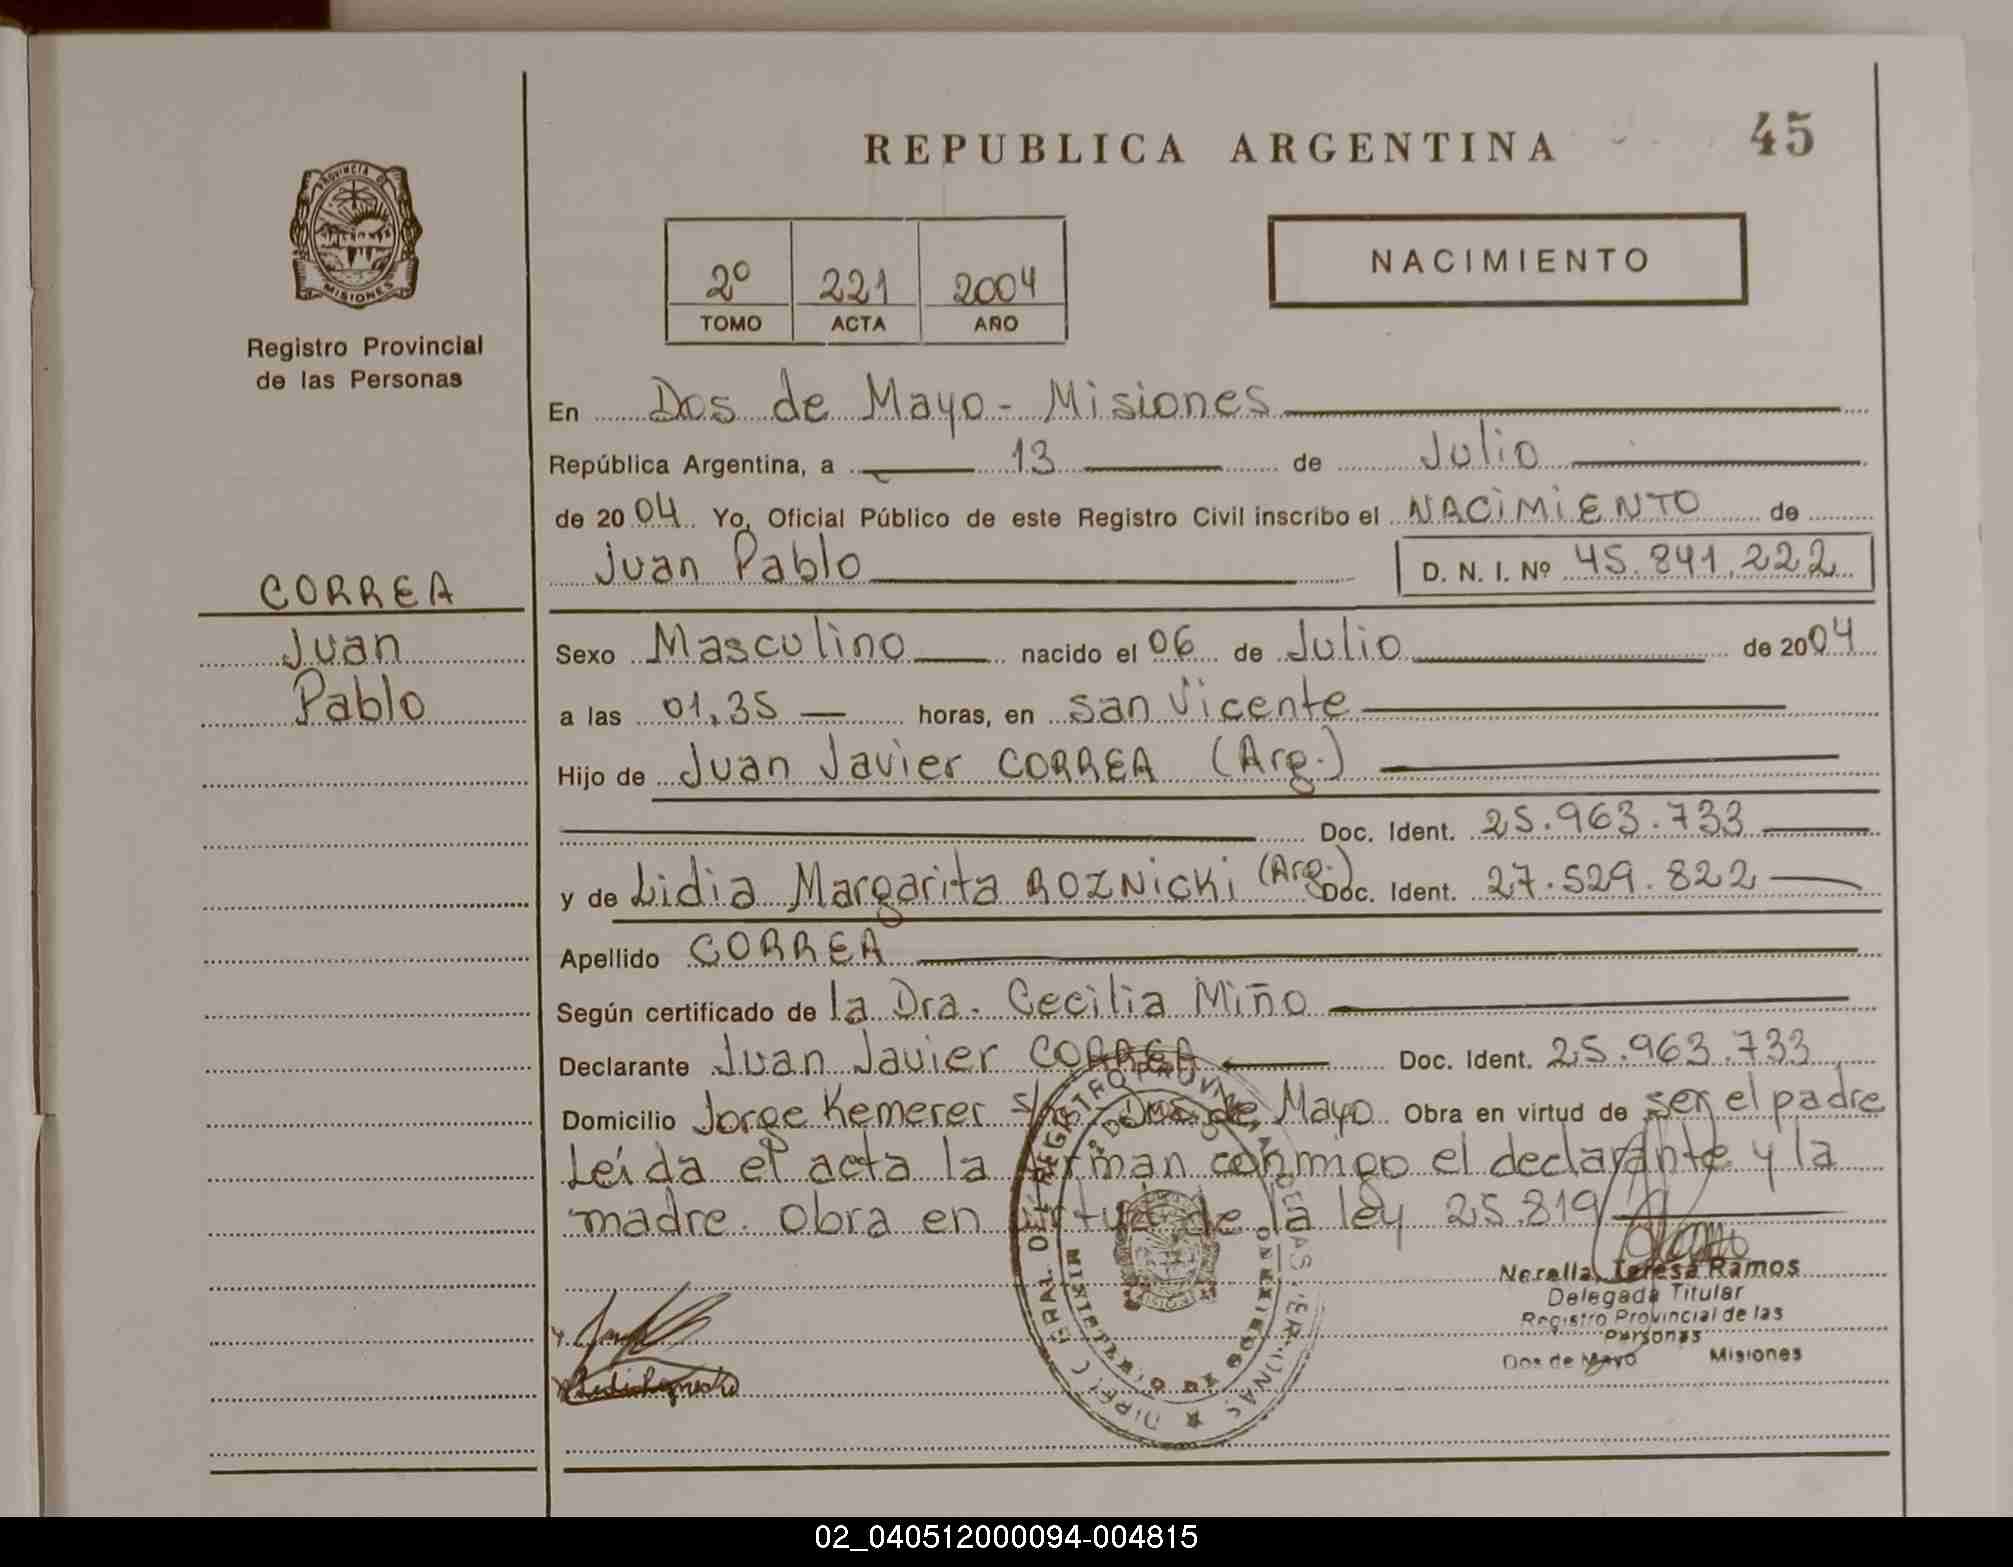 REPUBLICA ARGENTINA
45
PROVINCIA DE
MISIONES
Registro Provincial
de las Personas
2º 221 2004
TOMO ACTA AÑO
NACIMIENTO
En Dos de Mayo - Misiones
República Argentina, a 13 de Julio
de 2004 Yo, Oficial Público de este Registro Civil inscribo el NACIMIENTO de
Juan Pablo D. N. I. Nº 45.841.222
CORREA
Juan
Pablo
Sexo Masculino nacido el 06 de Julio de 2004
a las 01,35 horas, en San Vicente
Hijo de Juan Javier CORREA (Arg.)
Doc. Ident. 25.963.733
y de Lidia Margarita ROZNICKI (Arg.) Doc. Ident. 27.529.822
Apellido CORREA
Según certificado de la Dra. Cecilia Miño
Declarante Juan Javier CORREA Doc. Ident. 25.963.733
Domicilio Jorge Kemerer s/n Dos de Mayo Obra en virtud de ser el padre
Leída el acta la firman conmigo el declarante y la
madre. Obra en virtud de la ley 25.819
Nerella Teresa Ramos
Delegada Titular
Registro Provincial de las
Personas
Dos de Mayo Misiones
02_040512000094-004815